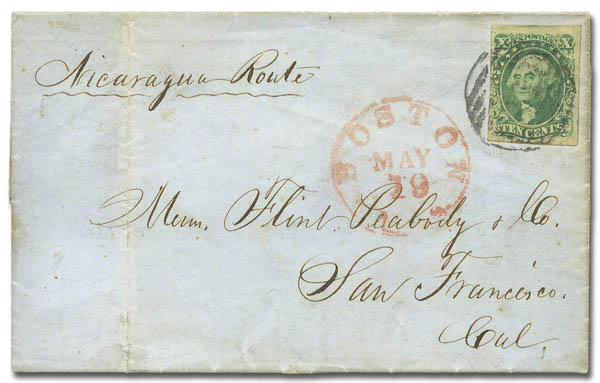 Nicaragua Route
X U.S. POSTAGE X
TEN CENTS
BOSTON
MAY
19
Messrs. Flint Peabody & Co.
San Francisco.
Cal.